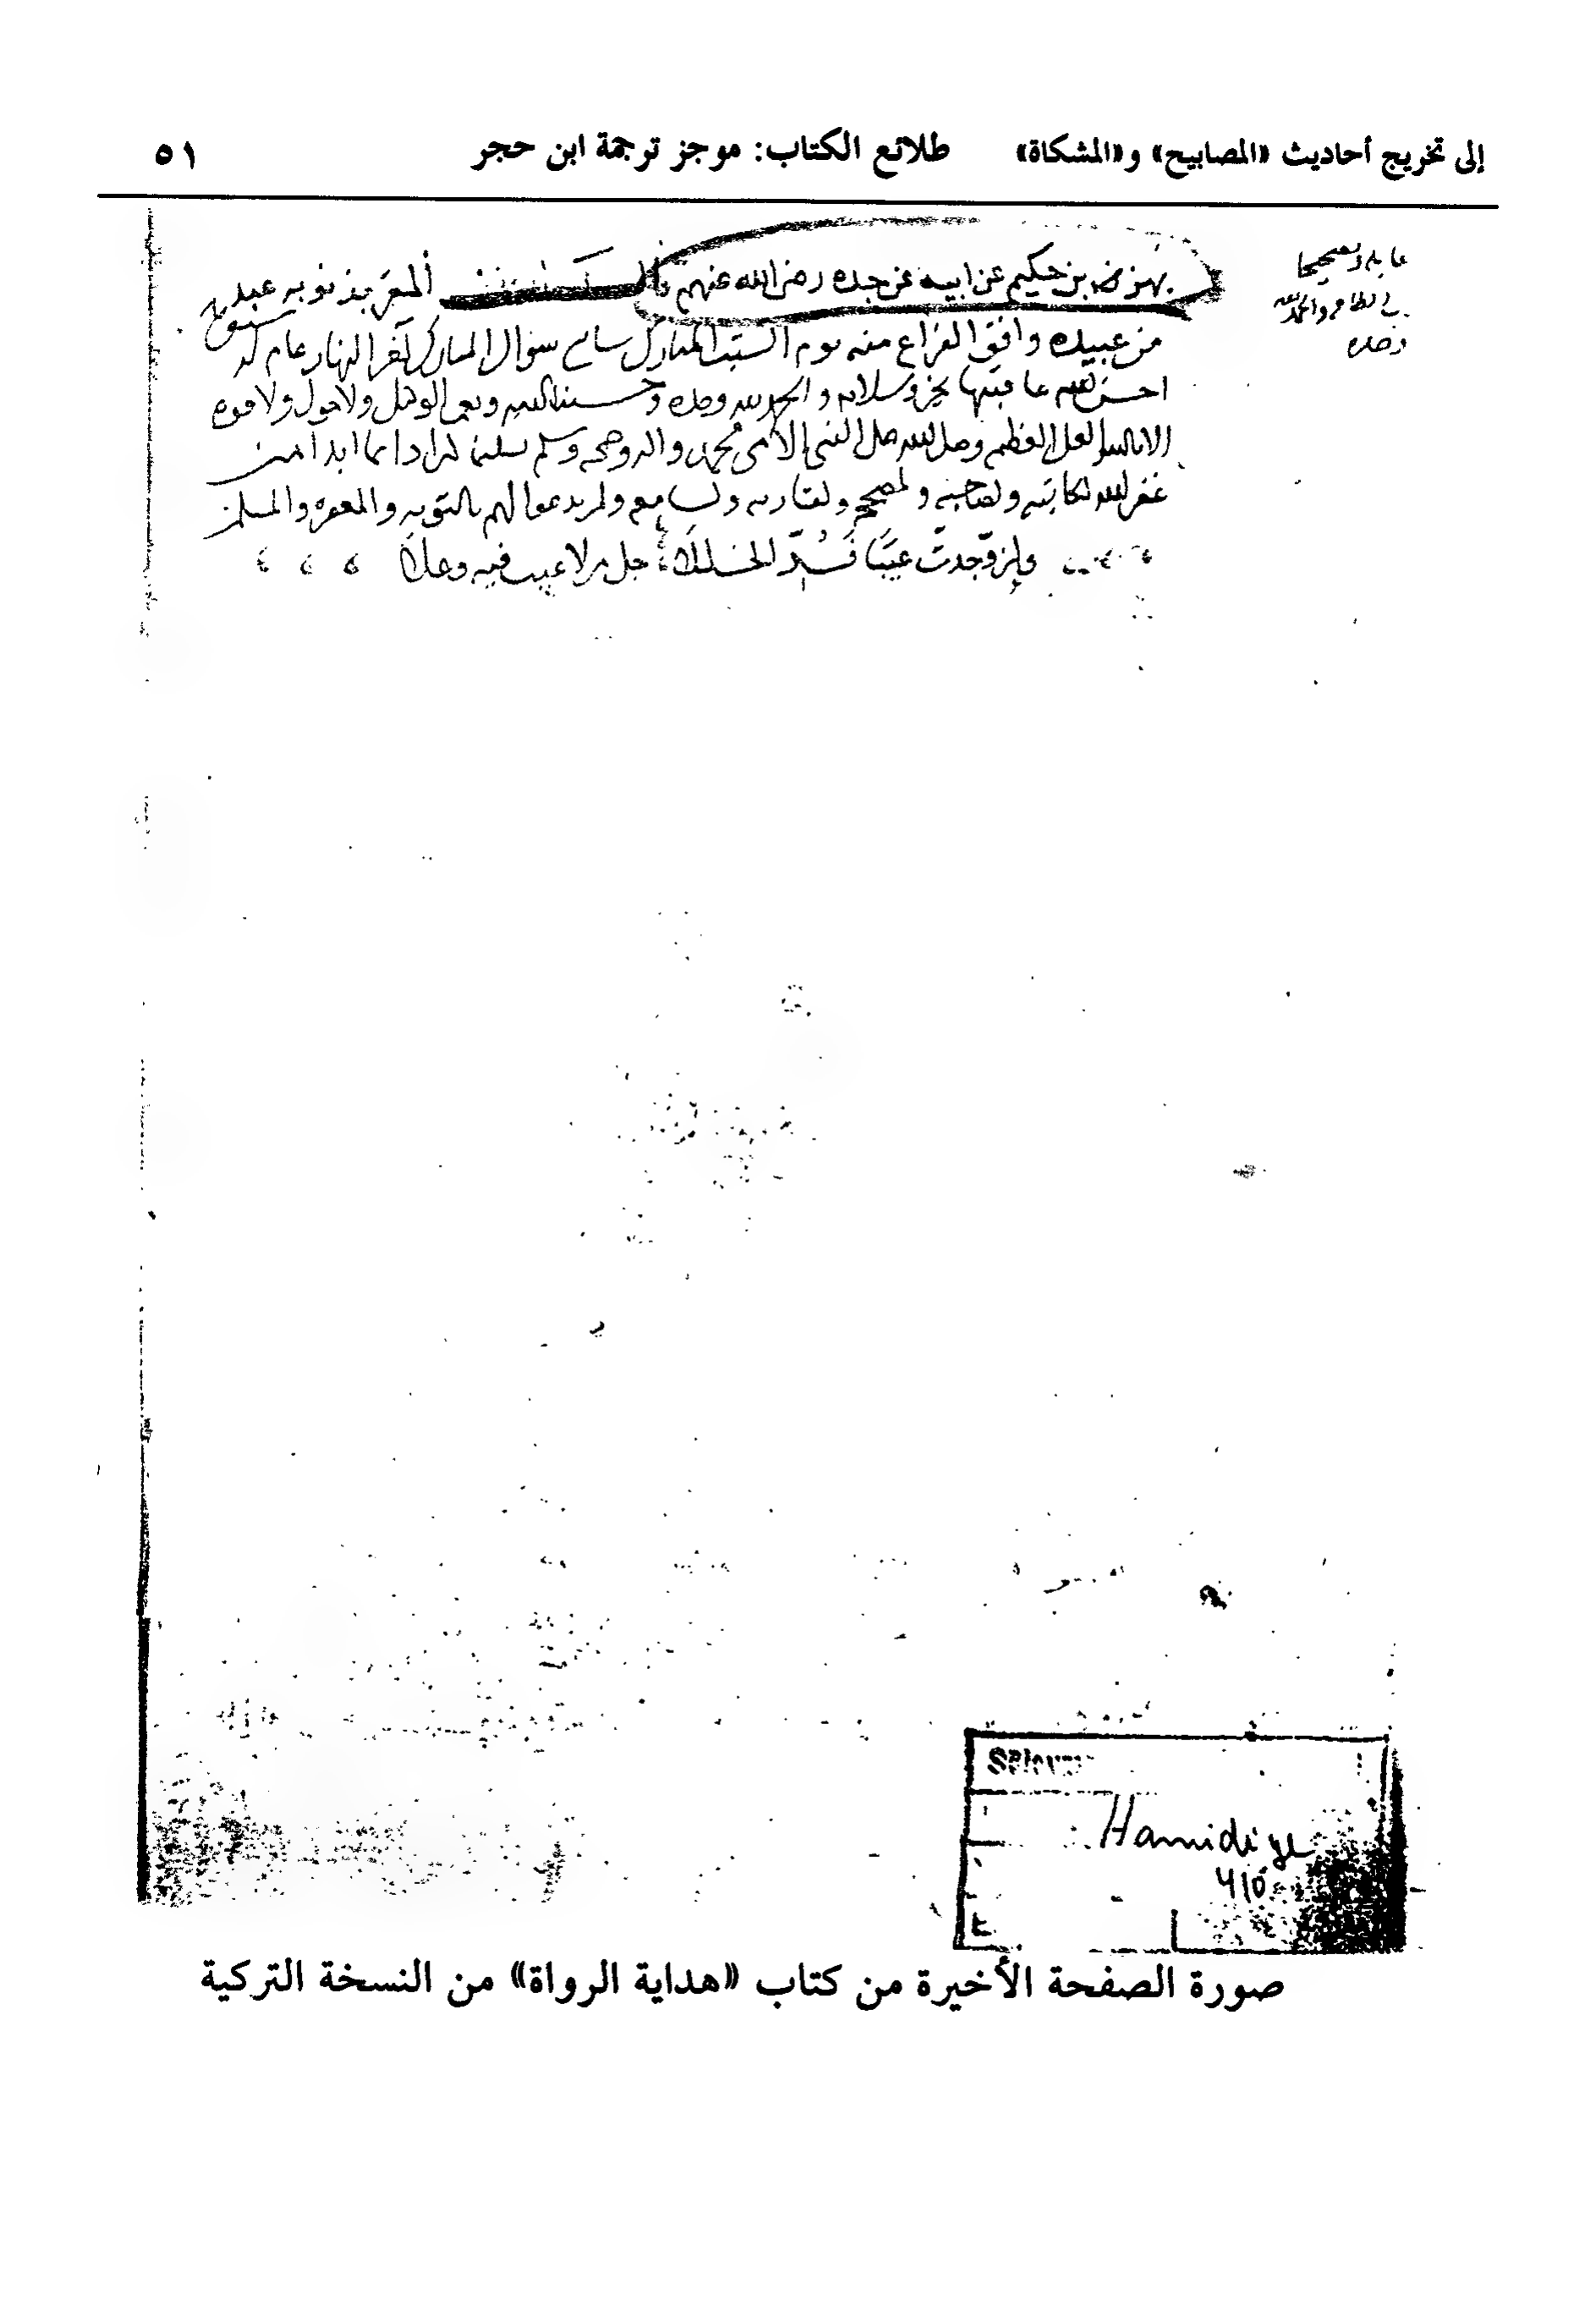 إلى تخريج أحاديث «المصابيح» و«المشكاة» طلائع الكتاب: موجز ترجمة ابن حجر ٥١
بهز بن حكيم عن ابيه عن جده رضي الله عنهم المقر بذنوبه عبد
من عبيده وافق الفراغ منه يوم السبت المبارك سابع شوال المبارك آخر النهار عام
احسن الله عاقبتها بخير وسلامه والحمد لله وحده وحسبنا الله ونعم الوكيل ولا حول ولا قوه
الا بالله العلي العظيم وصلى الله على النبي الامي محمد واله وصحبه وسلم تسليما كثيرا دائما ابدا امين
غفر الله لكاتبه ولصاحبه ولمصححه ولقاريه ولسامعه ولمن يدعوا لهم بالتوبه والمغفره والمسلمين
وإن وجدت عيبا فسد الخللا جل من لا عيب فيه وعلا
وتصحيحا
وحده
Hamidiye
410
صورة الصفحة الأخيرة من كتاب «هداية الرواة» من النسخة التركية